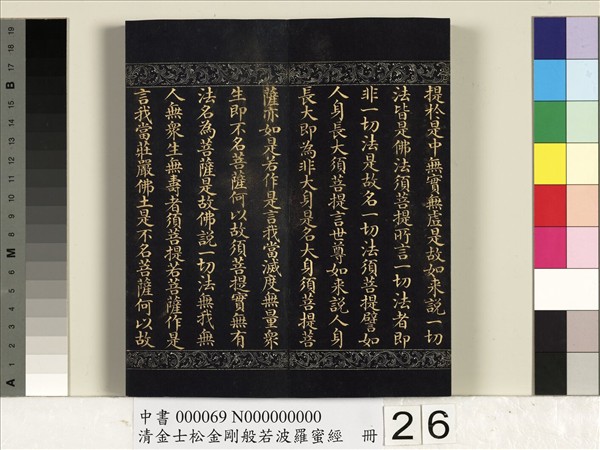 提於是中無實無虛是故如來說一切
法皆是佛法須菩提所言一切法者即
非一切法是故名一切法須菩提譬如
人身長大須菩提言世尊如來說人身
長大即為非大身是名大身須菩提菩
薩亦如是若作是言我當滅度無量眾
生即不名菩薩何以故須菩提實無有
法名為菩薩是故佛說一切法無我無
人無眾生無壽者須菩提若菩薩作是
言我當莊嚴佛土是不名菩薩何以故
中書 000069 N000000000
清金士松金剛般若波羅蜜經 冊 26
A 1 2 3 4 5 6 M 8 9 10 11 12 13 14 15 B 17 18 19